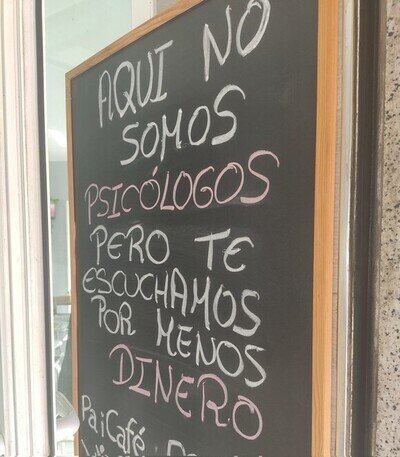 AQUI NO
SOMOS
PSICÓLOGOS
PERO TE
ESCUCHAMOS
POR MENOS
DINERO
Pa i Café